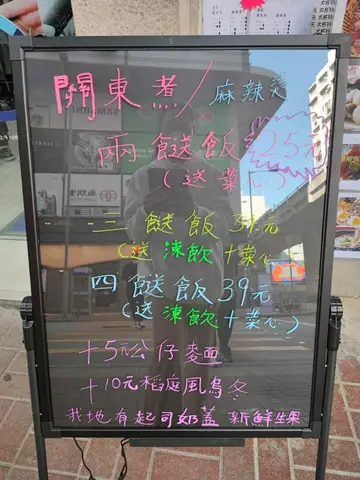 關東者/麻辣
兩餸飯 25元
(送菜心)
三餸飯 37元
(送涷飲+菜心)
四餸飯39元
(送涷飲+菜心)
+5元公仔麵
+10元稻庭風烏冬
我地有起司奶蓋 新鮮生果